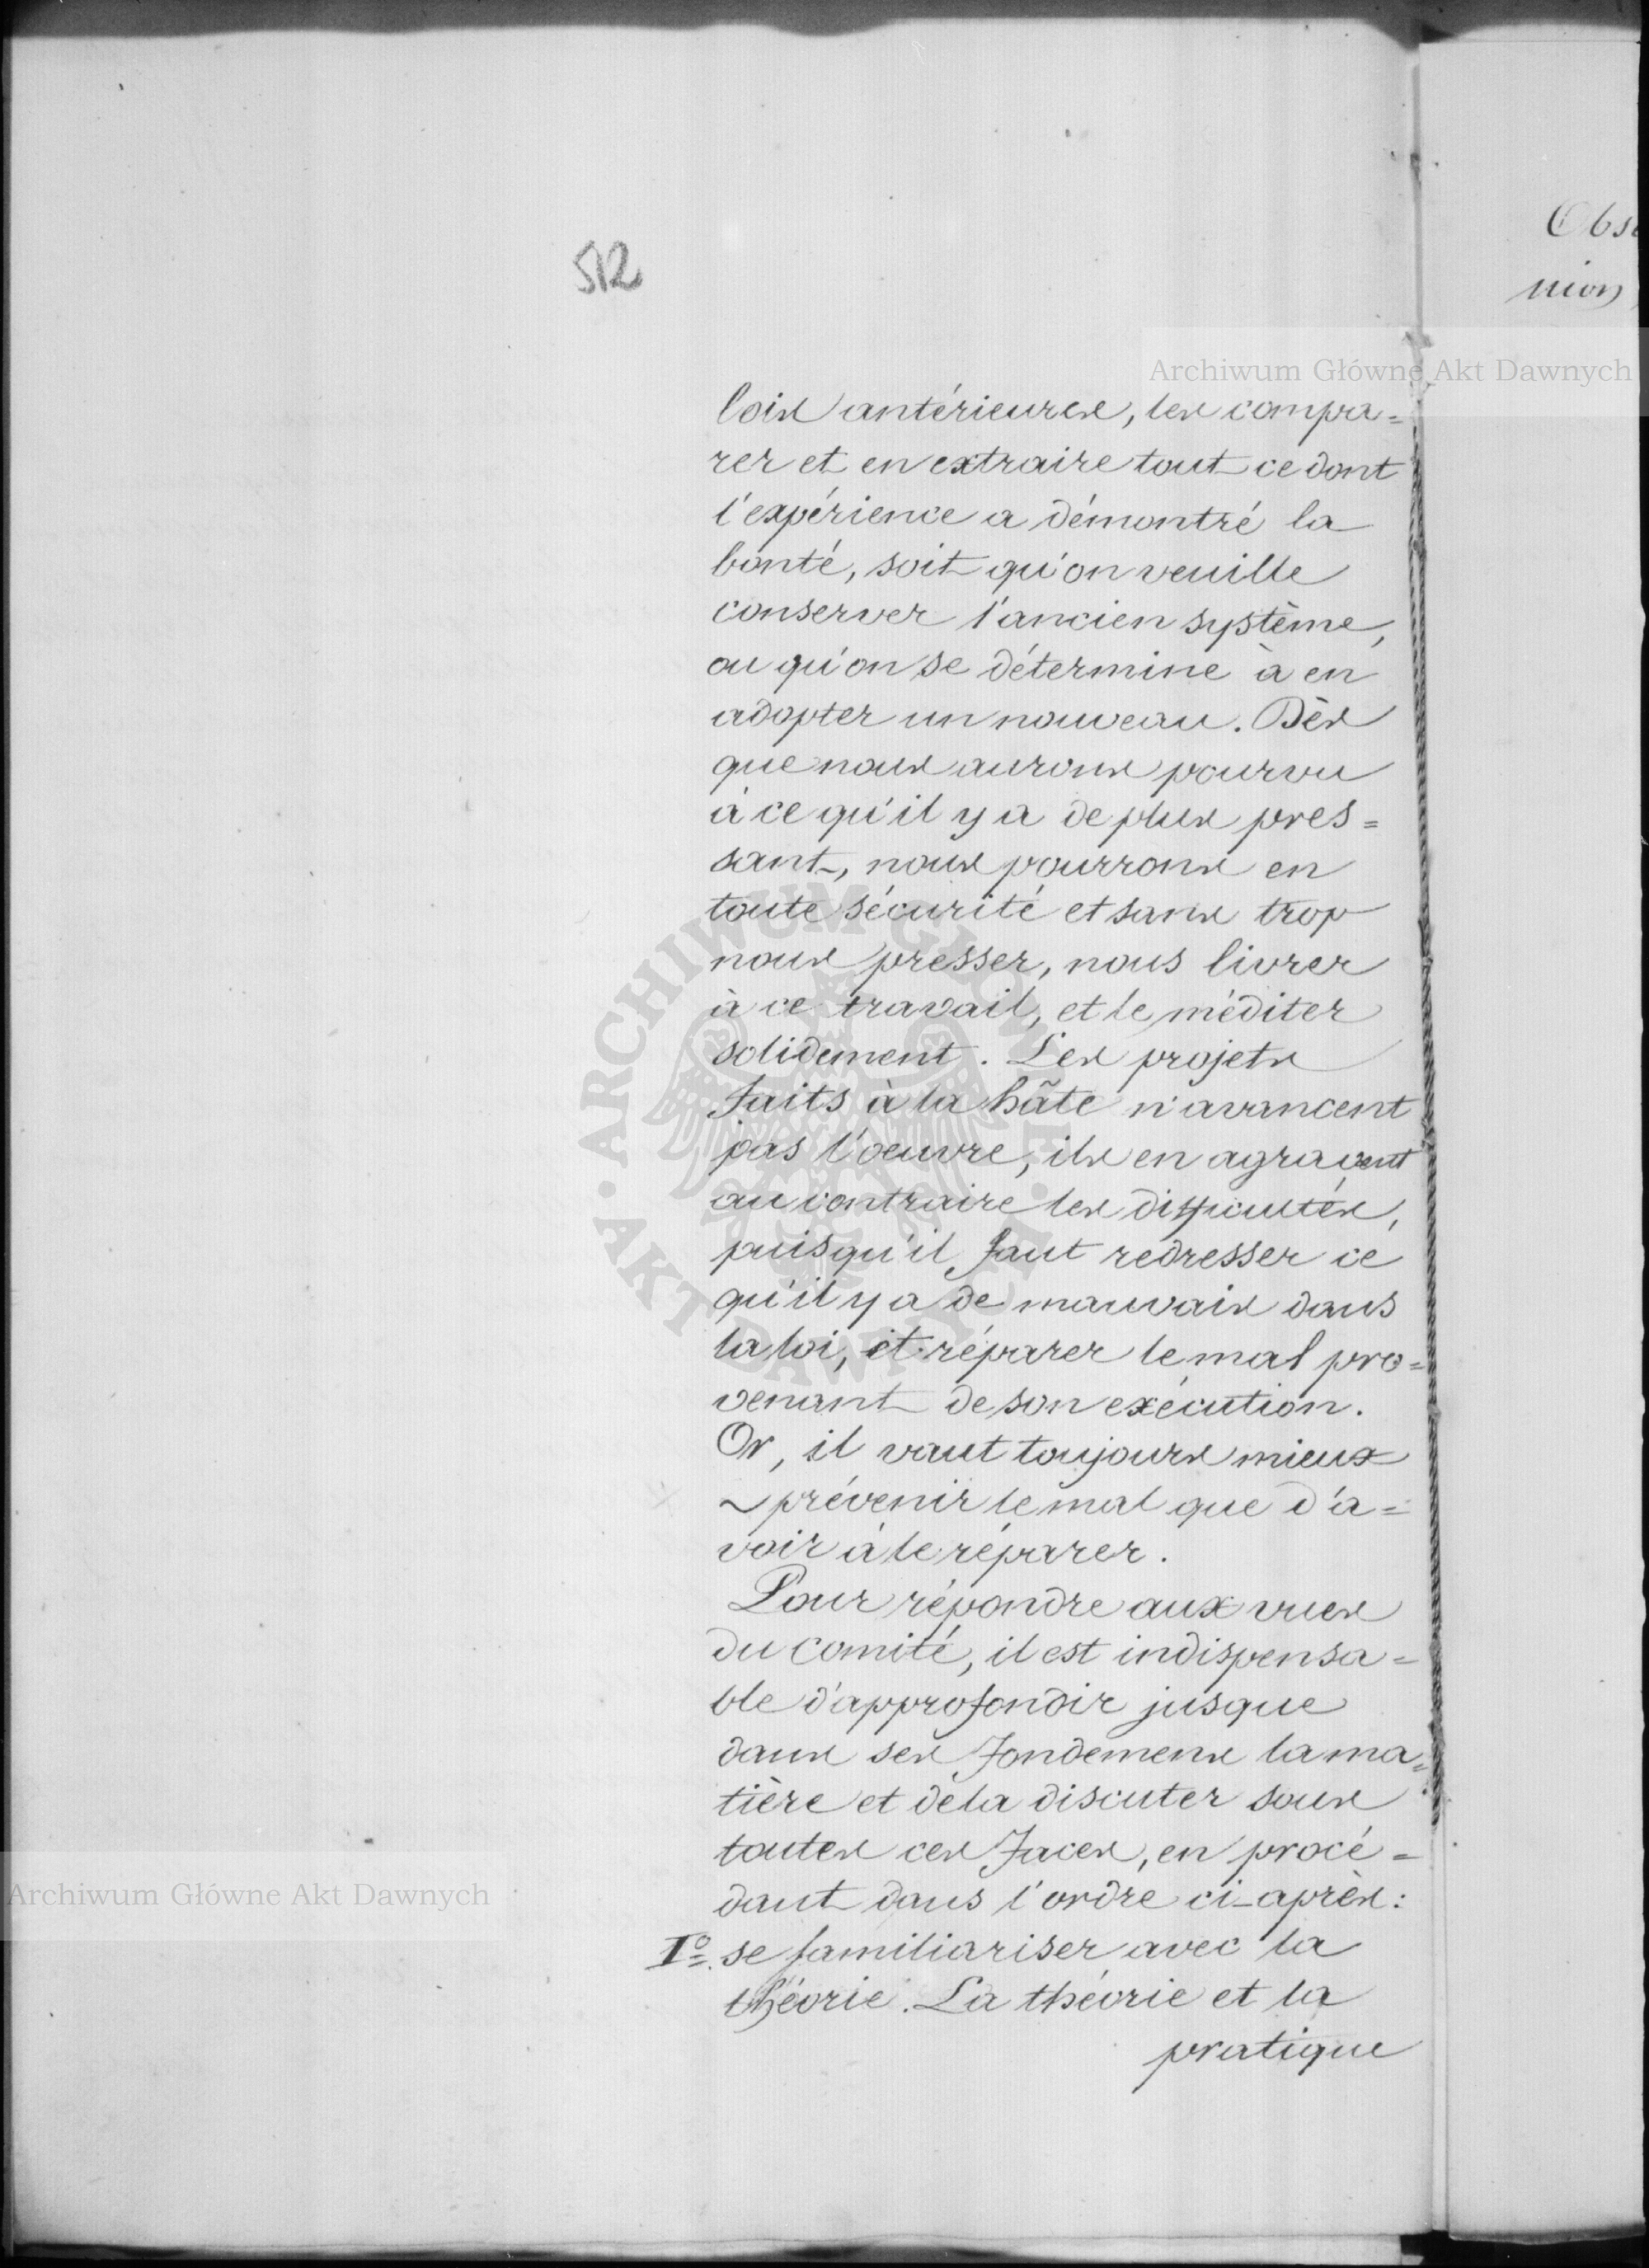 512
Obse
nion
Archiwum Główne Akt Dawnych
lois antérieures, les compa=
rer et en extraire tout ce dont
l'expérience a démontré la
bonté, soit qu'on veuille
conserver l'ancien système,
ou qu'on se détermine à en
adopter un nouveau. Dès
que nous aurons pourvu
à ce qu'il y a de plus pres=
sant, nous pourrons en
toute sécurité et sans trop
nous presser, nous livrer
à ce travail, et le méditer
solidement. Les projets
faits à la hâte n'avancent
pas l'oeuvre, ils en agravent
au contraire les difficultés,
puisqu'il faut redresser ce
qu'il y a de mauvais dans
la loi, et réparer le mal pro=
venant de son exécution.
Or, il vaut toujours mieux
prévenir le mal que d'a=
voir à le réparer.
Pour répondre aux vues
du Comité, il est indispensa=
ble d'approfondir jusque
dans ses fondemens la ma=
tière et de la discuter sous
toutes ces faces, en procé=
dant dans l'ordre ci-après:
Iº se familiariser avec la
théorie. La théorie et la
pratique
Archiwum Główne Akt Dawnych
ARCHIWUM GŁÓWNE · AKT DAWNYCH ·